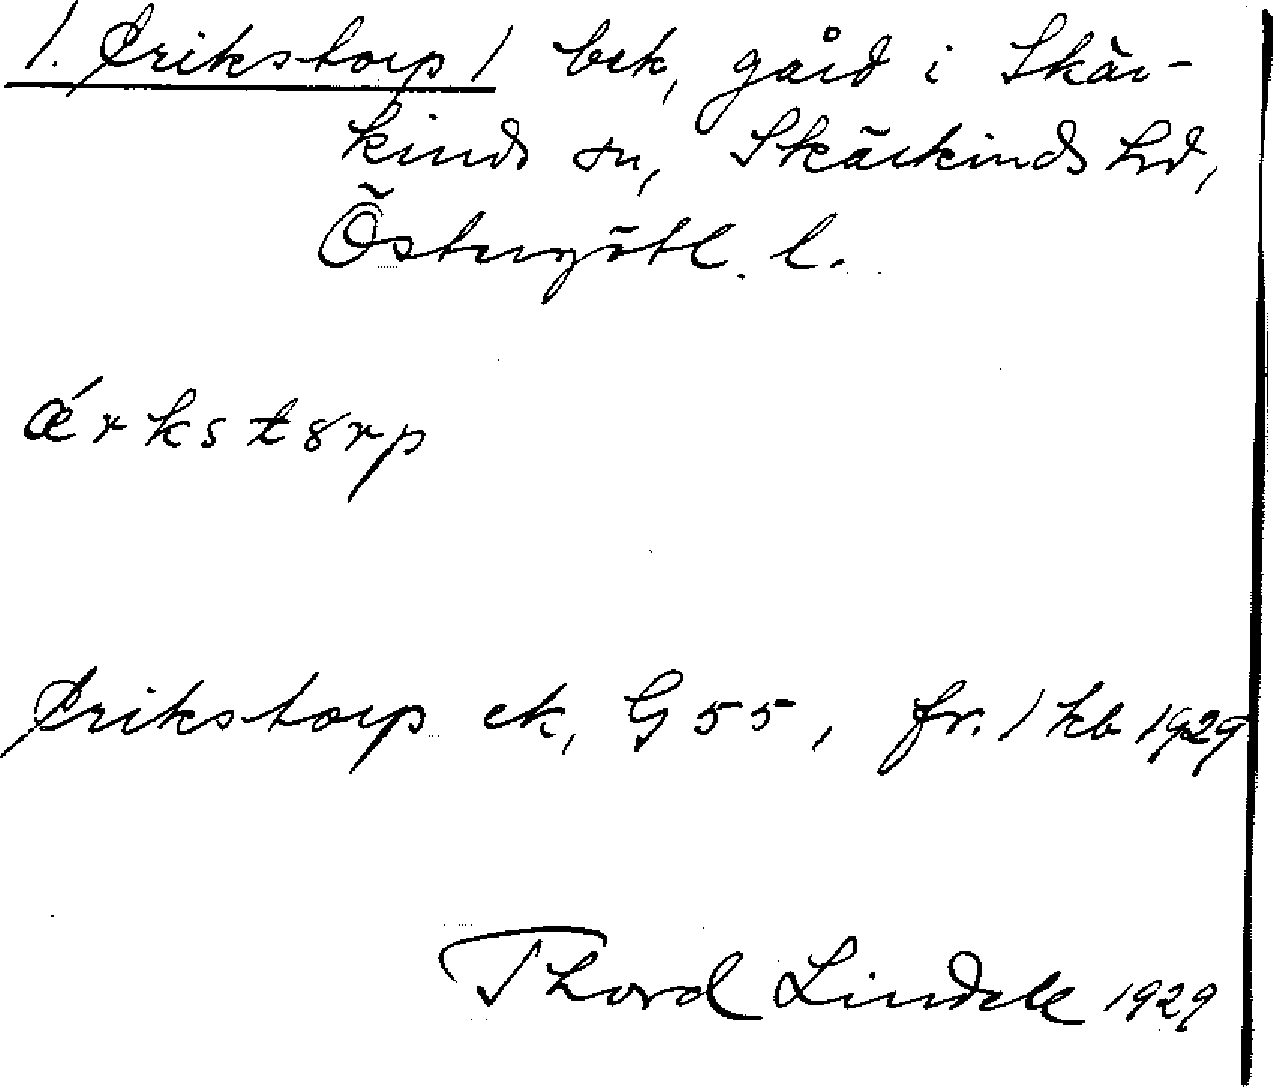 1. Erikstorp / bek, gård i Skär-
kinds sn, Skärkinds hd,
Östergötl. l.
ǽrkstɵrp
Erikstorp ek, G 55, fr. 1 kb 1929
Thord Lindell 1929